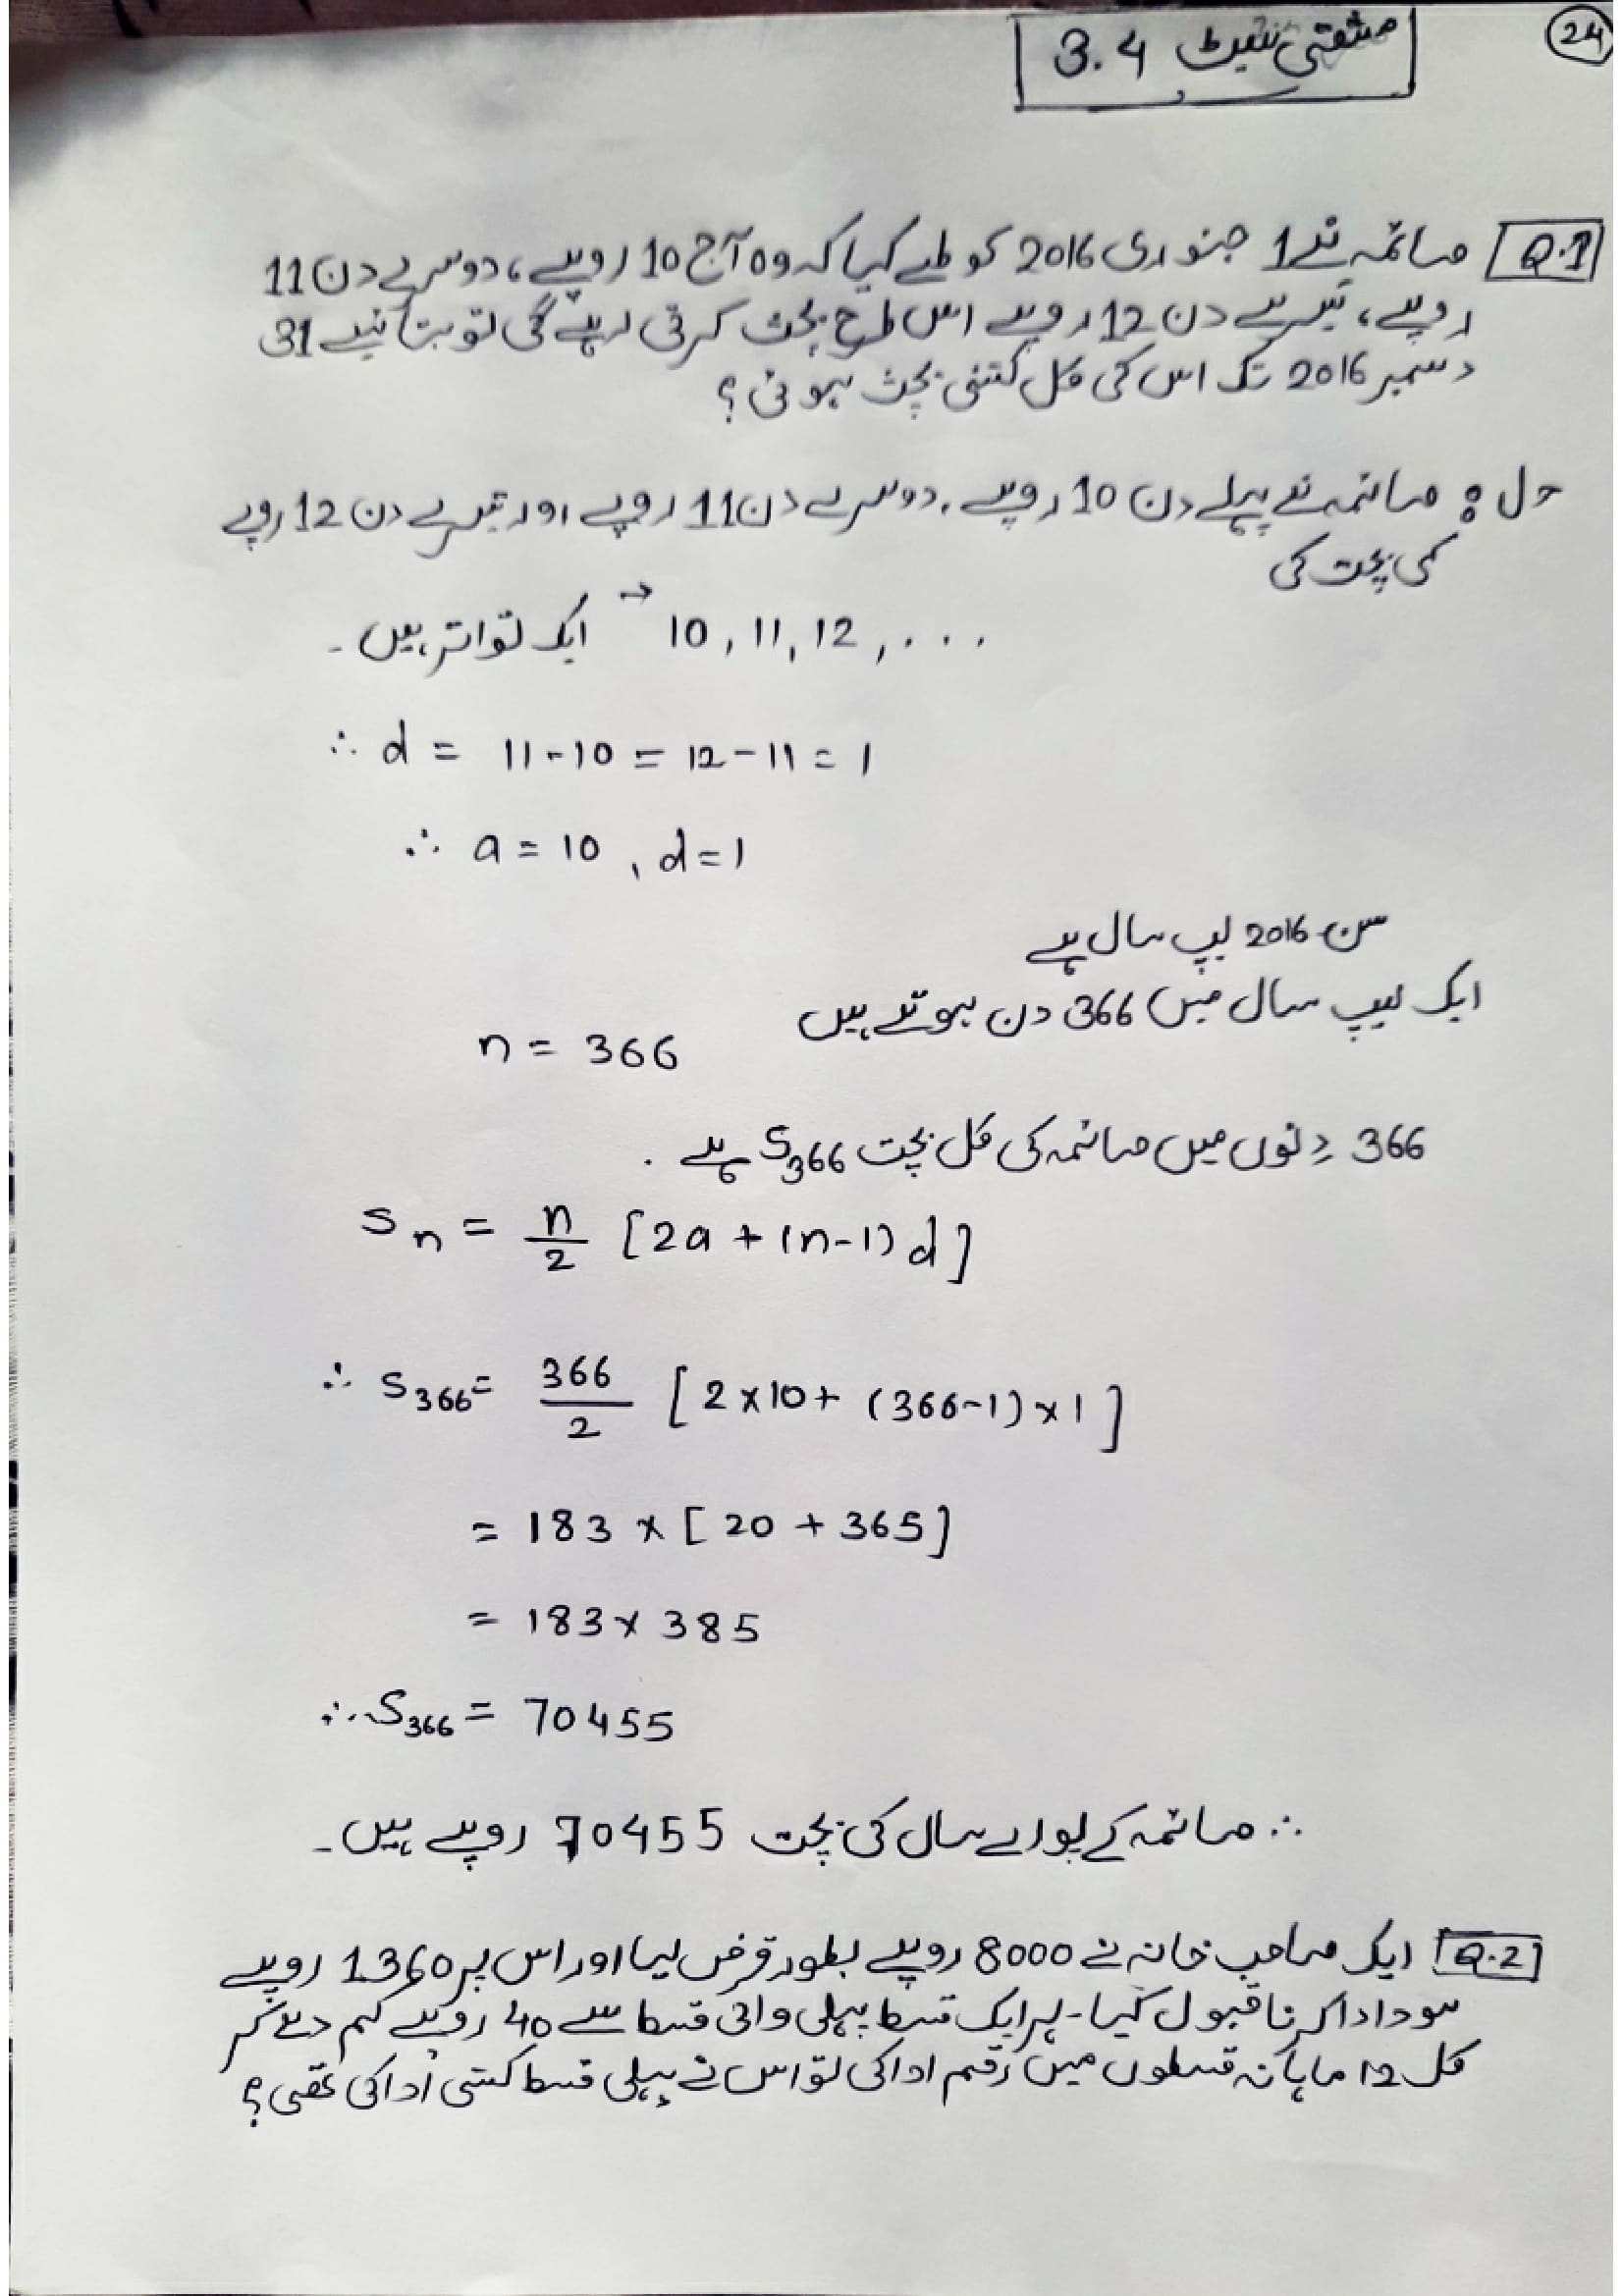 24
مشقی سیٹ 3.4
Q.1 صائمہ نے 1 جنوری 2016 کو طے کیا کہ وہ آج 10 روپے، دوسرے دن 11
روپے، تیسرے دن 12 روپے اس طرح بچت کرتی رہے گی تو بتائیے 31
دسمبر 2016 تک اس کی کل کتنی بچت ہوئی؟
حل : صائمہ نے پہلے دن 10 روپے، دوسرے دن 11 روپے اور تیسرے دن 12 روپے
کی بچت کی
10, 11, 12, ... → ایک تواتر ہیں۔
∴ d = 11-10 = 12-11 = 1
∴ a = 10, d=1
سن 2016 لیپ سال ہے
ایک لیپ سال میں 366 دن ہوتے ہیں
n = 366
366 دنوں میں صائمہ کی کل بچت S₃₆₆ ہے.
Sₙ = n/2 [2a + (n-1)d]
∴ S₃₆₆ = 366/2 [2×10+ (366-1)×1]
= 183 × [20 + 365]
= 183 × 385
∴ S₃₆₆ = 70455
∴ صائمہ کے پورے سال کی بچت 70455 روپے ہیں۔
Q.2 ایک صاحب خانہ نے 8000 روپے بطور قرض لیا اور اس پر 1360 روپے
سود ادا کرنا قبول کیا۔ ہر ایک قسط پہلی والی قسط سے 40 روپے کم دے کر
کل 12 ماہانہ قسطوں میں رقم ادا کی تو اس نے پہلی قسط کتنی ادا کی تھی؟